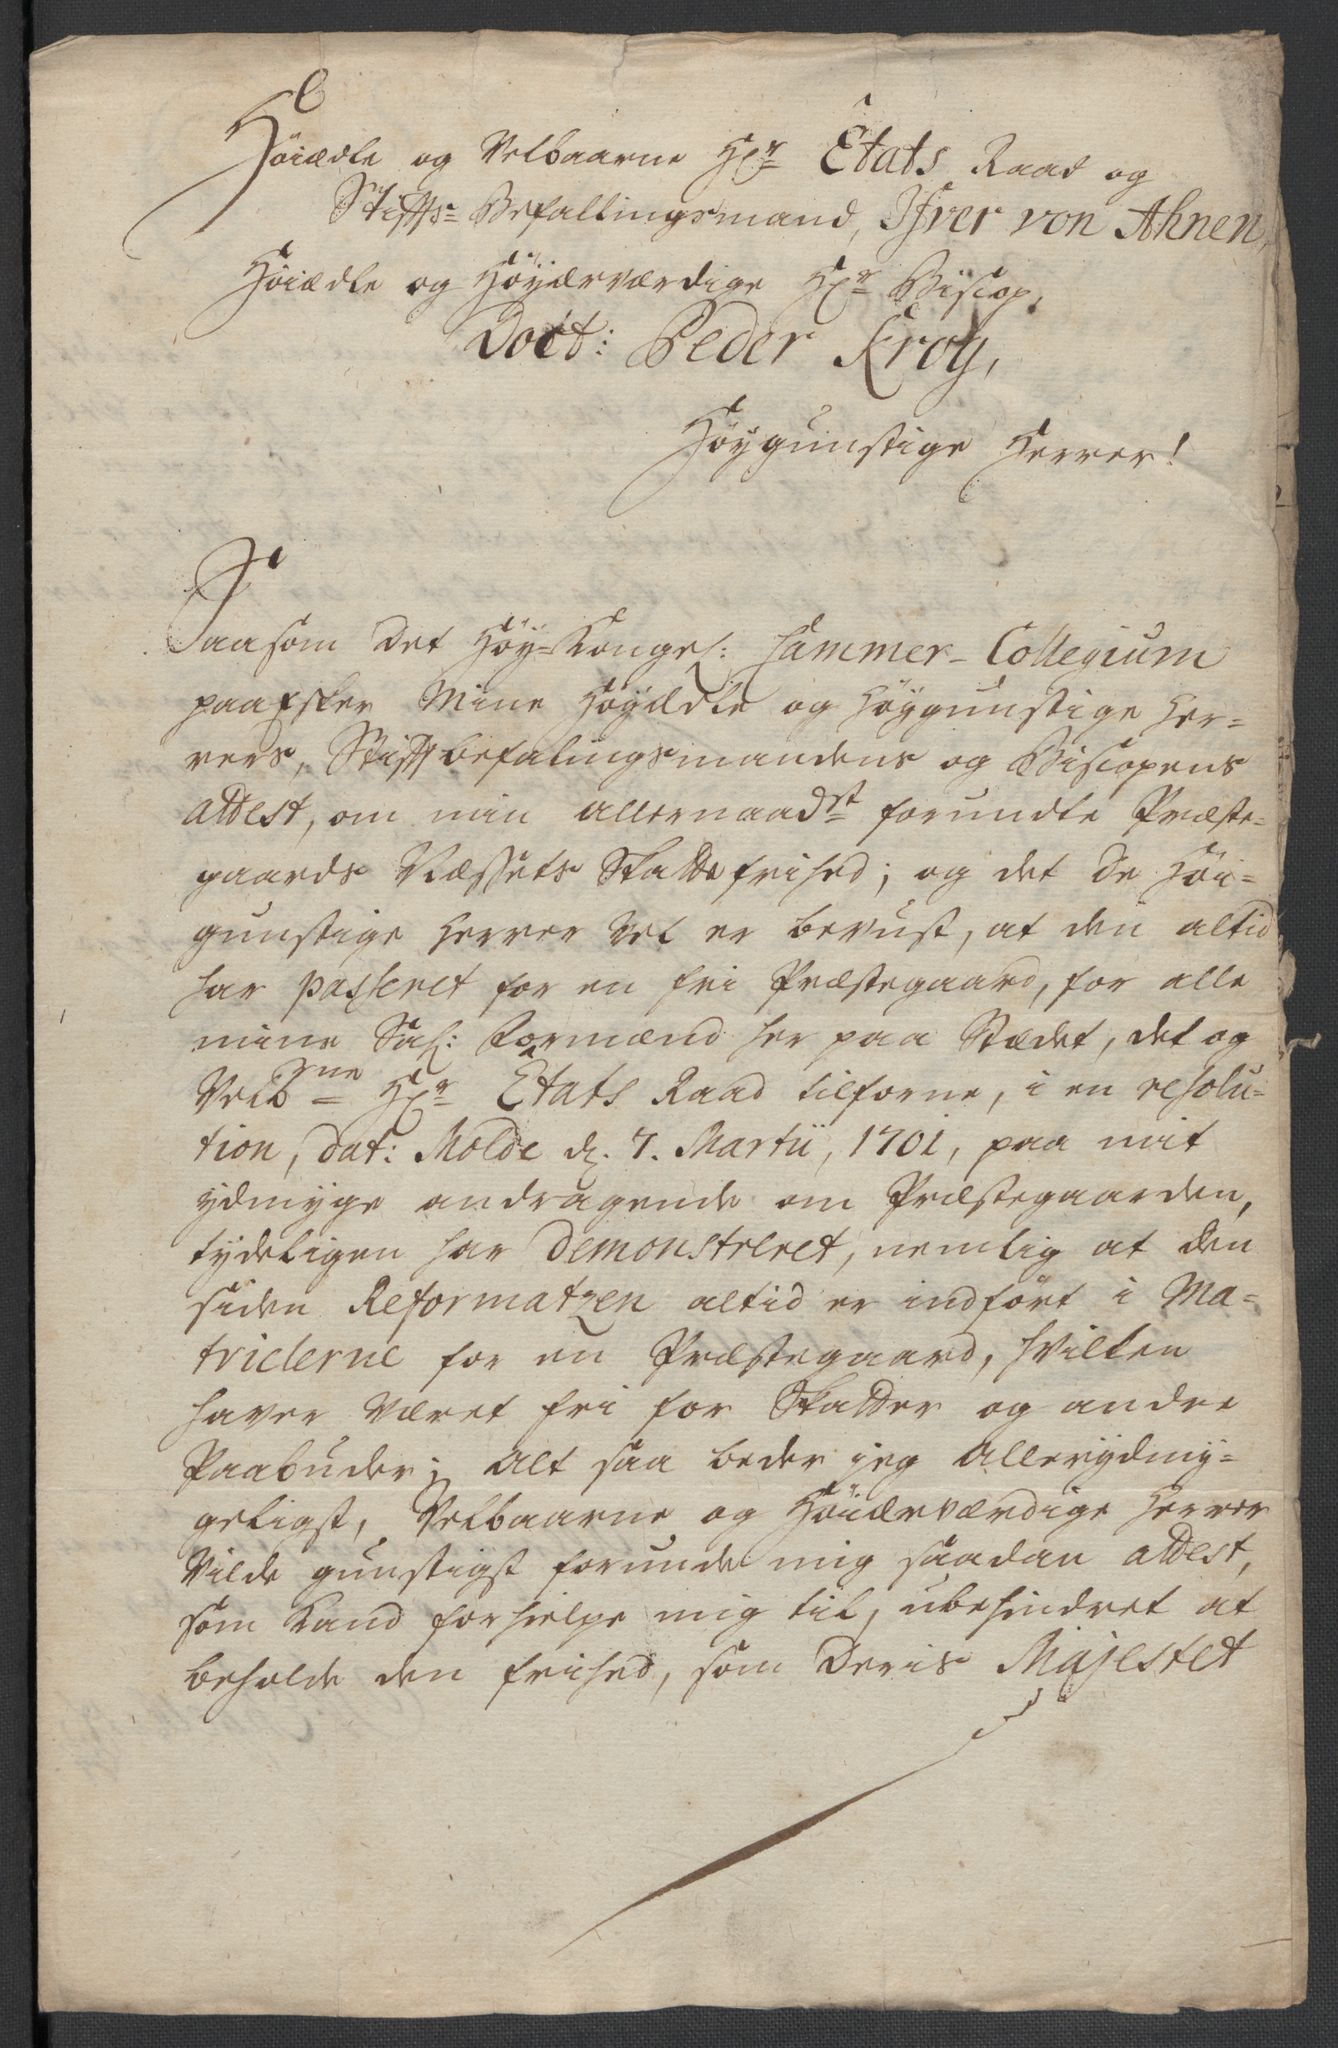 Höiædle og Velbaarne Hr Etats Raad og
Stiffts-Befallingsmand, Ifver von Ahnen,
Höiædle og Höyærværdige Hr Biscop,
Doct: Peder Krog,
Höygunstige Herrer!
Saasom det Höy-Kongel: Cammer-Collegium
paaæsker Mine Höyædle og Höygunstige Her-
rers, Stifftbefalingsmandens og Biscopens
attest, om min allernaadst forundte Præste-
gaards Næssets Skatte frihed; og det De Höi-
gunstige Herrer vel er bevust, at den altid
har passeret for en fri Præstegaard, for alle
mine Sal: Formænd her paa Stædet, det og
Velbne Hr Etats Raad tilforne, i en resolu-
tion, dat: Molde d. 7. Martii, 1701, paa mit
ydmyge andragende om Præstegaarden,
tydeligen har demonstreret, nemlig at den
siden Reformatzen altid er indfört i Ma-
triclerne for en Præstegaard, hvilken
haver været fri for Skatter og andre
Paabuder; Alt saa beder jeg allerydmy-
geligst, Velbaarne og Höiærværdige Herrer
Vilde gunstigst forunde mig saadan attest,
som kand forhielpe mig til, ubehindret at
beholde den frihed, som Deris Majestet